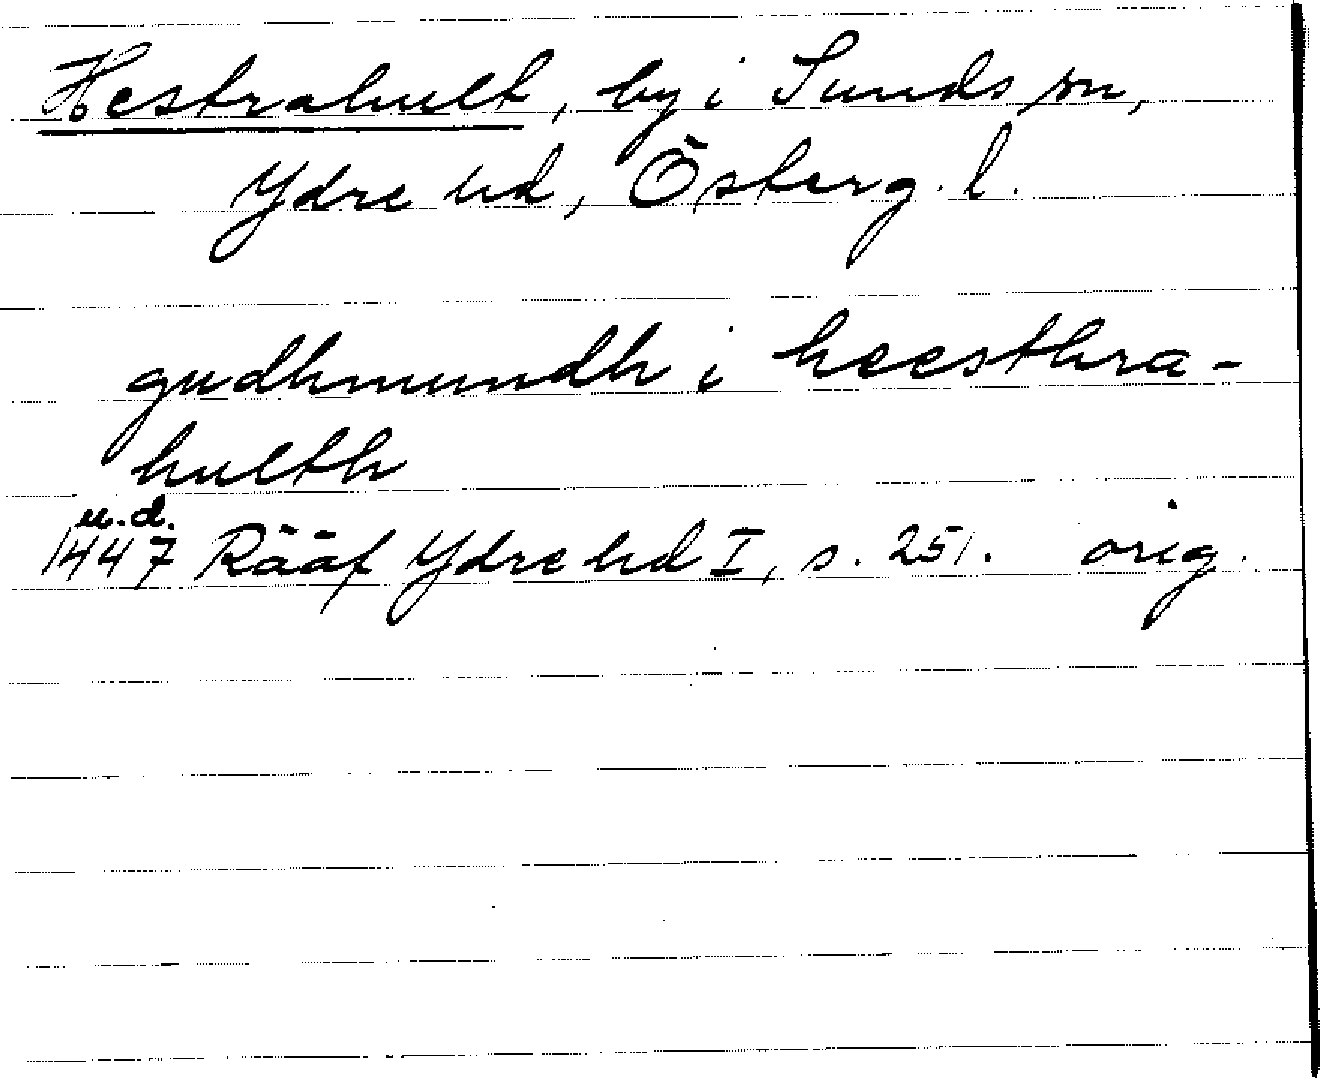 Hestrahult, by i Sunds sn,
Ydre hd, Österg. l.
gudhmundh i heesthra-
hulth
u.d.
1447 Rääf Ydre hd I, s. 251. orig.